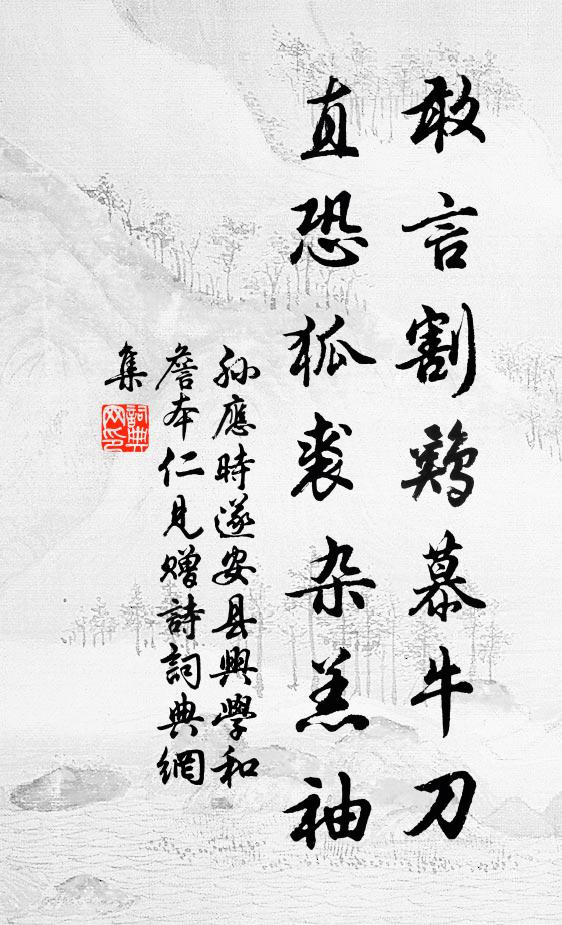 敢言割鷄慕牛刀
直恐狐裘杂羔袖
孙應時遂安县興學和
詹本仁見贈詩詞典網
集
詞典
网印